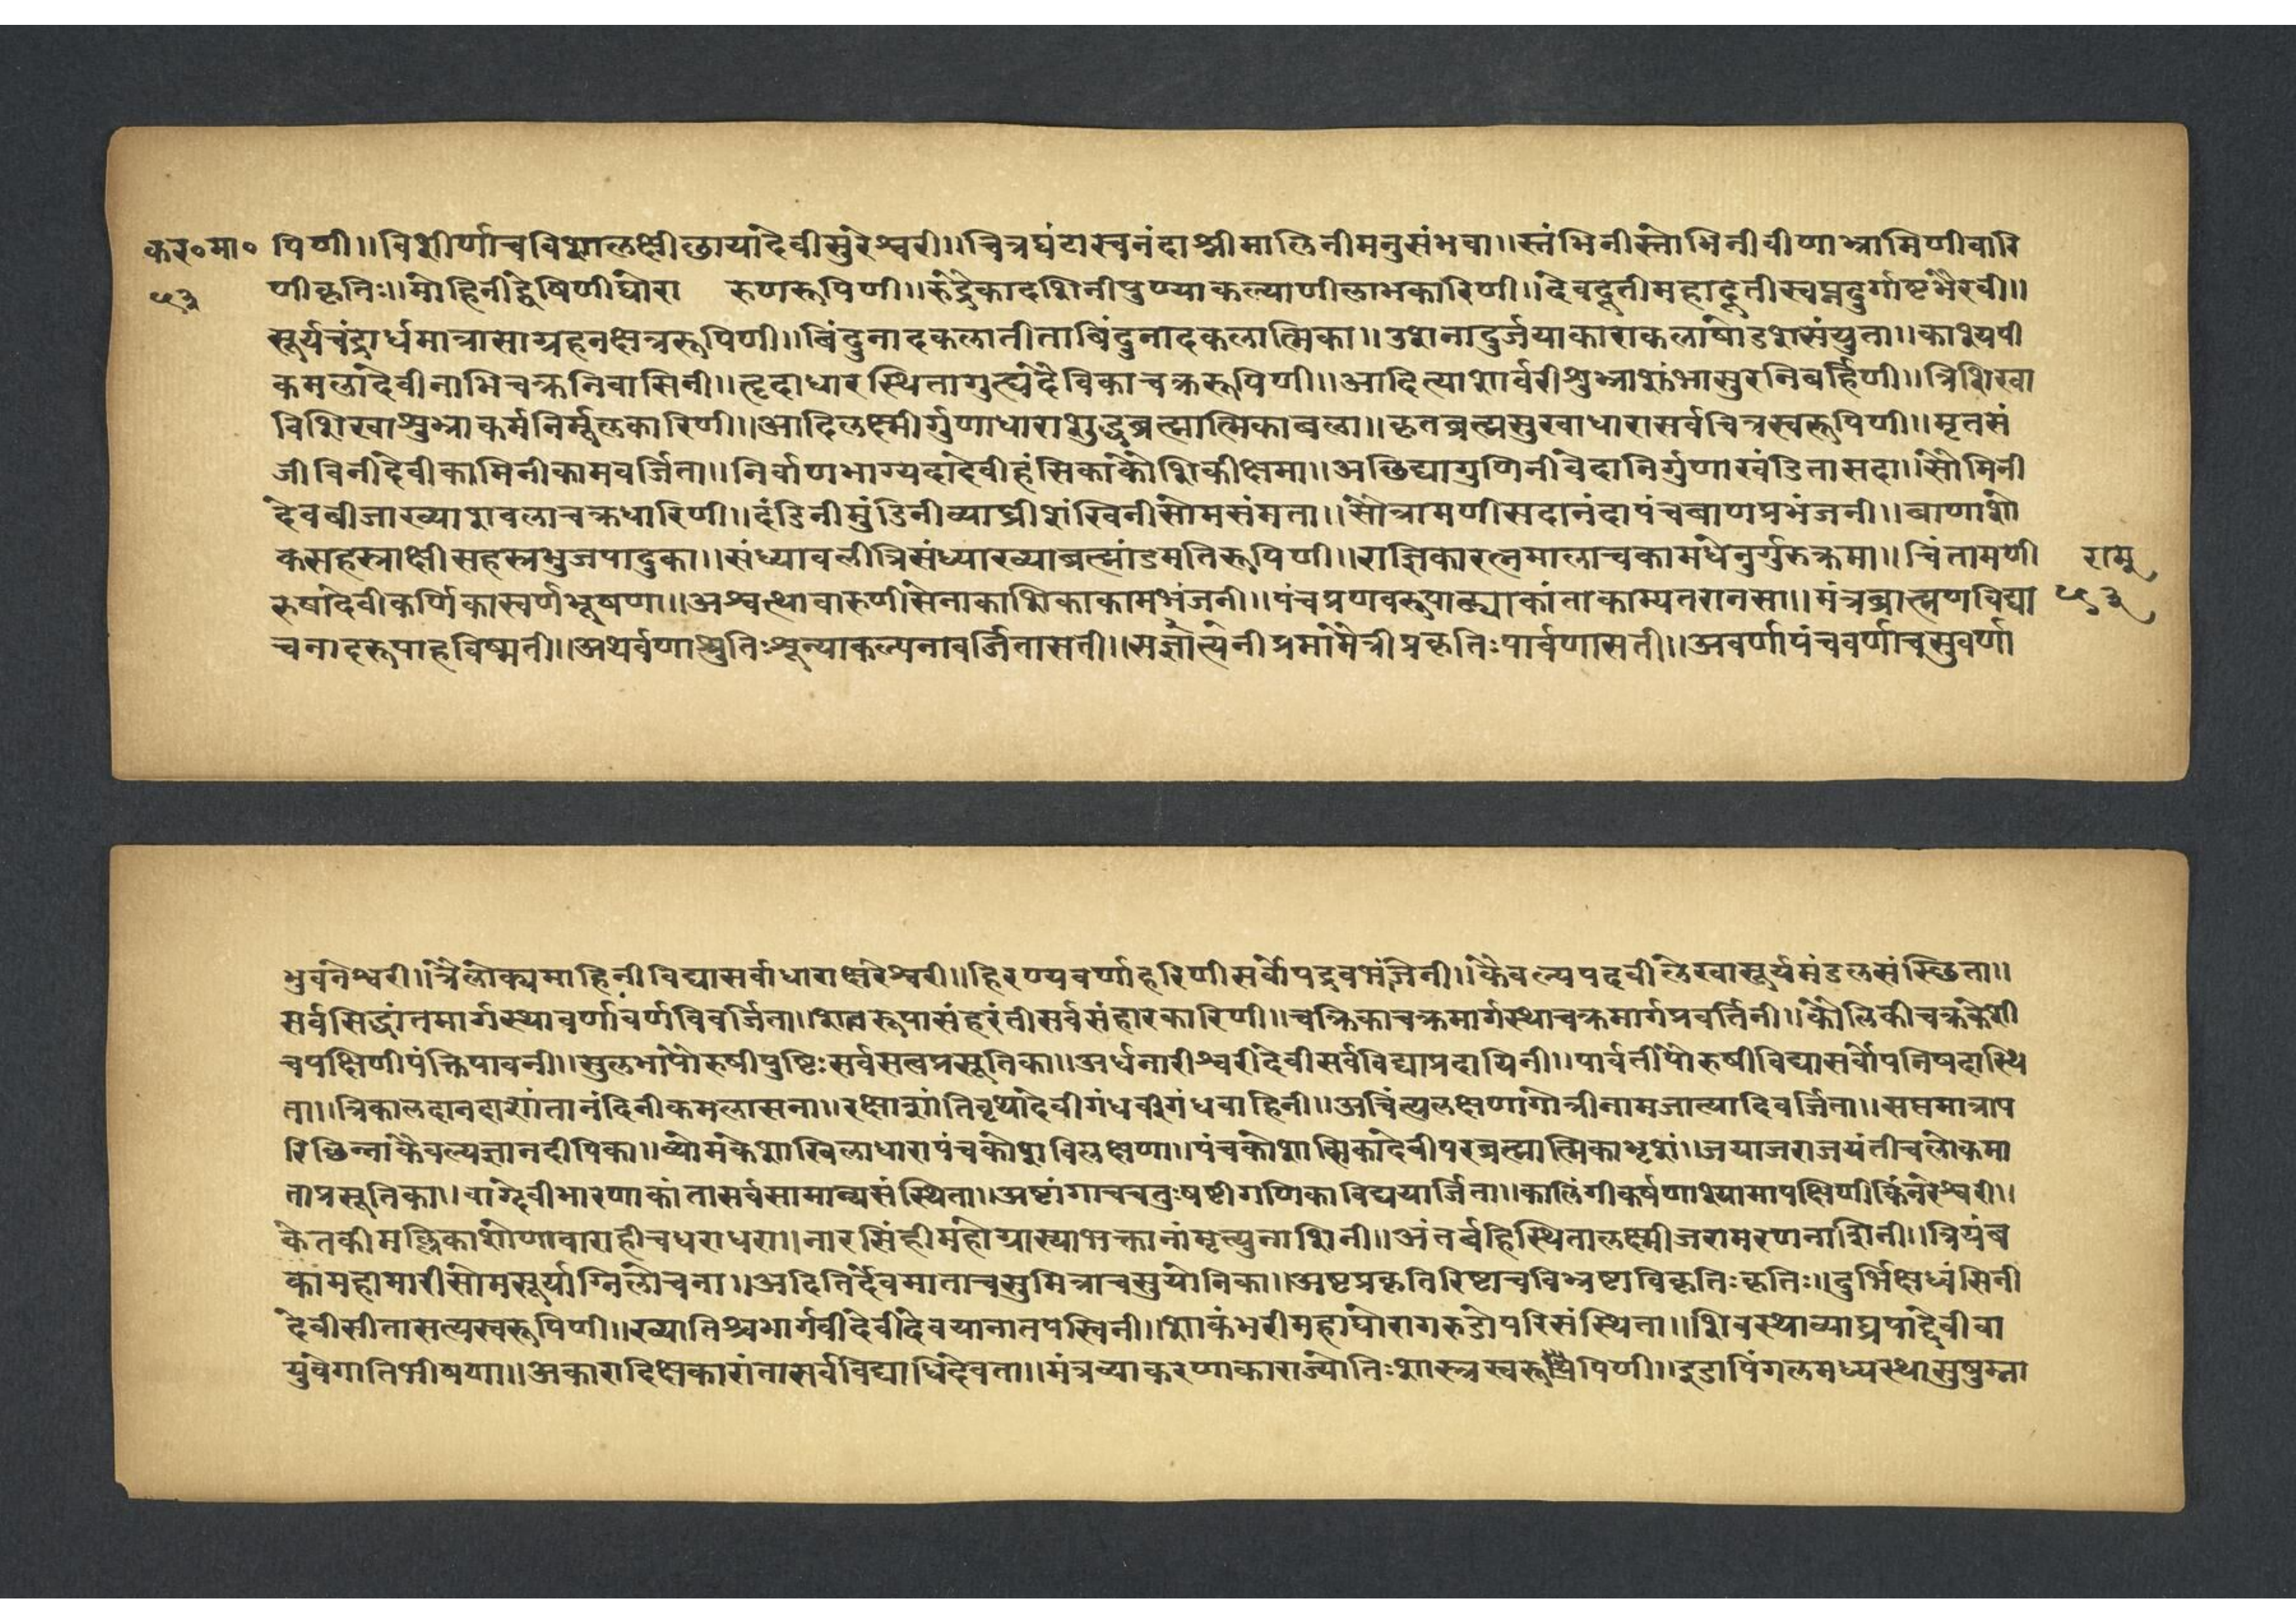 कर॰मा॰ पिणी॥विशीर्णाचविशालक्षीछायादेवीसुरेश्वरी॥चित्रघंटास्वनंदाश्रीमालिनीमनुसंभवा॥स्तंभिनीस्तोभिनीवीणाभ्रामिणीवारि
५३ णीकृतिः॥मोहिनीद्वेषिणीघोरा रुणरूपिणी॥रुद्रैकादशिनीपुण्याकल्याणीलाभकारिणी॥देवदूतीमहादूतीस्वप्नदुर्गाष्टभैरवी॥
सूर्यचंद्रार्धमात्रासाग्रहनक्षत्ररूपिणी॥बिंदुनादकलातीताबिंदुनादकलात्मिका॥उशनादुर्जयाकाराकलाषोडशसंयुता॥काश्यपी
कमलादेवीनाभिचक्रनिवासिनी॥हृदाधारस्थितागुह्यदेविकाचक्ररूपिणी॥आदित्याशर्वरीशुभ्राशुंभासुरनिबर्हिणी॥त्रिशिखा
विशिखाशुभ्राकर्मनिर्मूलकारिणी॥आदिलक्ष्मीर्गुणाधाराशुद्धब्रह्मात्मिकाबला॥कृतब्रह्मसुखाधारासर्वचित्रस्वरूपिणी॥मृतसं
जीविनीदेवीकामिनीकामवर्जिता॥निर्वाणभाग्यदादेवीहंसिकाकौशिकीक्षमा॥अछिद्यागुणिनीवेदानिर्गुणाखंडितासदा॥सोमिनी
देवबीजाख्याशबलाचक्रधारिणी॥दंडिनीमुंडिनीव्याघ्रीशंखिनीसोमसंमता॥सौत्रामणीसदानंदापंचबाणप्रभंजनी॥बाणाशो
कसहस्राक्षीसहस्रभुजपादुका॥संध्यावलीत्रिसंध्याख्याब्रह्मांडमतिरूपिणी॥राज्ञिकारत्नमालाचकामधेनुर्गुरुक्रमा॥चिंतामणी राम
रुषादेवीकर्णिकास्वर्णभूषणा॥अश्वत्थावारुणीसेनाकाशिकाकामभंजनी॥पंचप्रणवरूपाढ्याकांताकाम्यतरानसा॥मंत्रब्राह्मणविद्या ५३
चनादरूपाहविष्मती॥अथर्वणाश्रुतिःशून्याकल्पनावर्जितासती॥सत्प्रमामैत्रीप्रकृतिःपार्वणासती॥अवर्णापंचवर्णाचसुवर्णा
भुवनेश्वरी॥त्रैलोक्यमोहिनीविद्यासर्वाधाराक्षरेश्वरी॥हिरण्यवर्णाहरिणीसर्वोपद्रवभंजनी॥कैवल्यपदवीलेखासूर्यमंडलसंस्थिता॥
सर्वसिद्धांतमार्गस्थावर्णावर्णविवर्जिता॥रूपासंहरंतीसर्वसंहारकारिणी॥चक्रिकाचक्रमार्गस्थाचक्रमार्गप्रवर्तिनी॥कौलिकीचक्रकेशी
चपक्षिणीपंक्तिपावनी॥सुलभापौरुषीपुष्टिःसर्वसत्वप्रसूतिका॥अर्धनारीश्वरीदेवीसर्वविद्याप्रदायिनी॥पार्वतीपौरुषीविद्यासर्वोपनिषदास्थि
ता॥त्रिकालदानदाशांतानंदिनीकमलासना॥रक्षाशांतिवृथादेवीगंधर्वीगंधवाहिनी॥अचिंत्यलक्षणागोत्रीनामजात्यादिवर्जिता॥सप्तमात्राप
रिछिन्नाकैवल्यज्ञानदीपिका॥व्योमकेशाखिलाधारापंचकोशविलक्षणा॥पंचकोशात्मिकादेवीपरब्रह्मात्मिकाभृशं॥जयाजराजयंतीचलोकमा
ताप्रसूतिका॥वाग्देवीभारणाकांतासर्वसामान्यसंस्थिता॥अष्टांगाचचतुःषष्टीगणिकाविद्ययार्जिता॥कालिंगीकर्षणाश्यामापक्षिणीकिंनरेश्वरी॥
केतकीमल्लिकाशोणावाराहीचधराधरा॥नारसिंहीमहोग्रास्याभक्तानांमृत्युनाशिनी॥अंतर्बहिस्थितालक्ष्मीजरामरणनाशिनी॥त्रियंब
कामहामारीसोमसूर्याग्निलोचना॥अदितिर्देवमाताचसुमित्राचसुयोनिका॥अष्टप्रकृतिरिष्टाचविभ्रष्टाविकृतिःकृतिः॥दुर्भिक्षध्वंसिनी
देवीसीतासत्यस्वरूपिणी॥ख्यातिश्चभार्गवीदेवीदेवयानातपस्विनी॥शाकंभरीमहाघोरागरुडोपरिसंस्थिता॥शिवस्थाव्याघ्रपादेवीवा
युवेगातिभीषणा॥अकारादिक्षकारांतासर्वविद्याधिदेवता॥मंत्रव्याकरणाकाराज्योतिःशास्त्रस्वरूपिणी॥इडापिंगलमध्यस्थासुषुम्ना